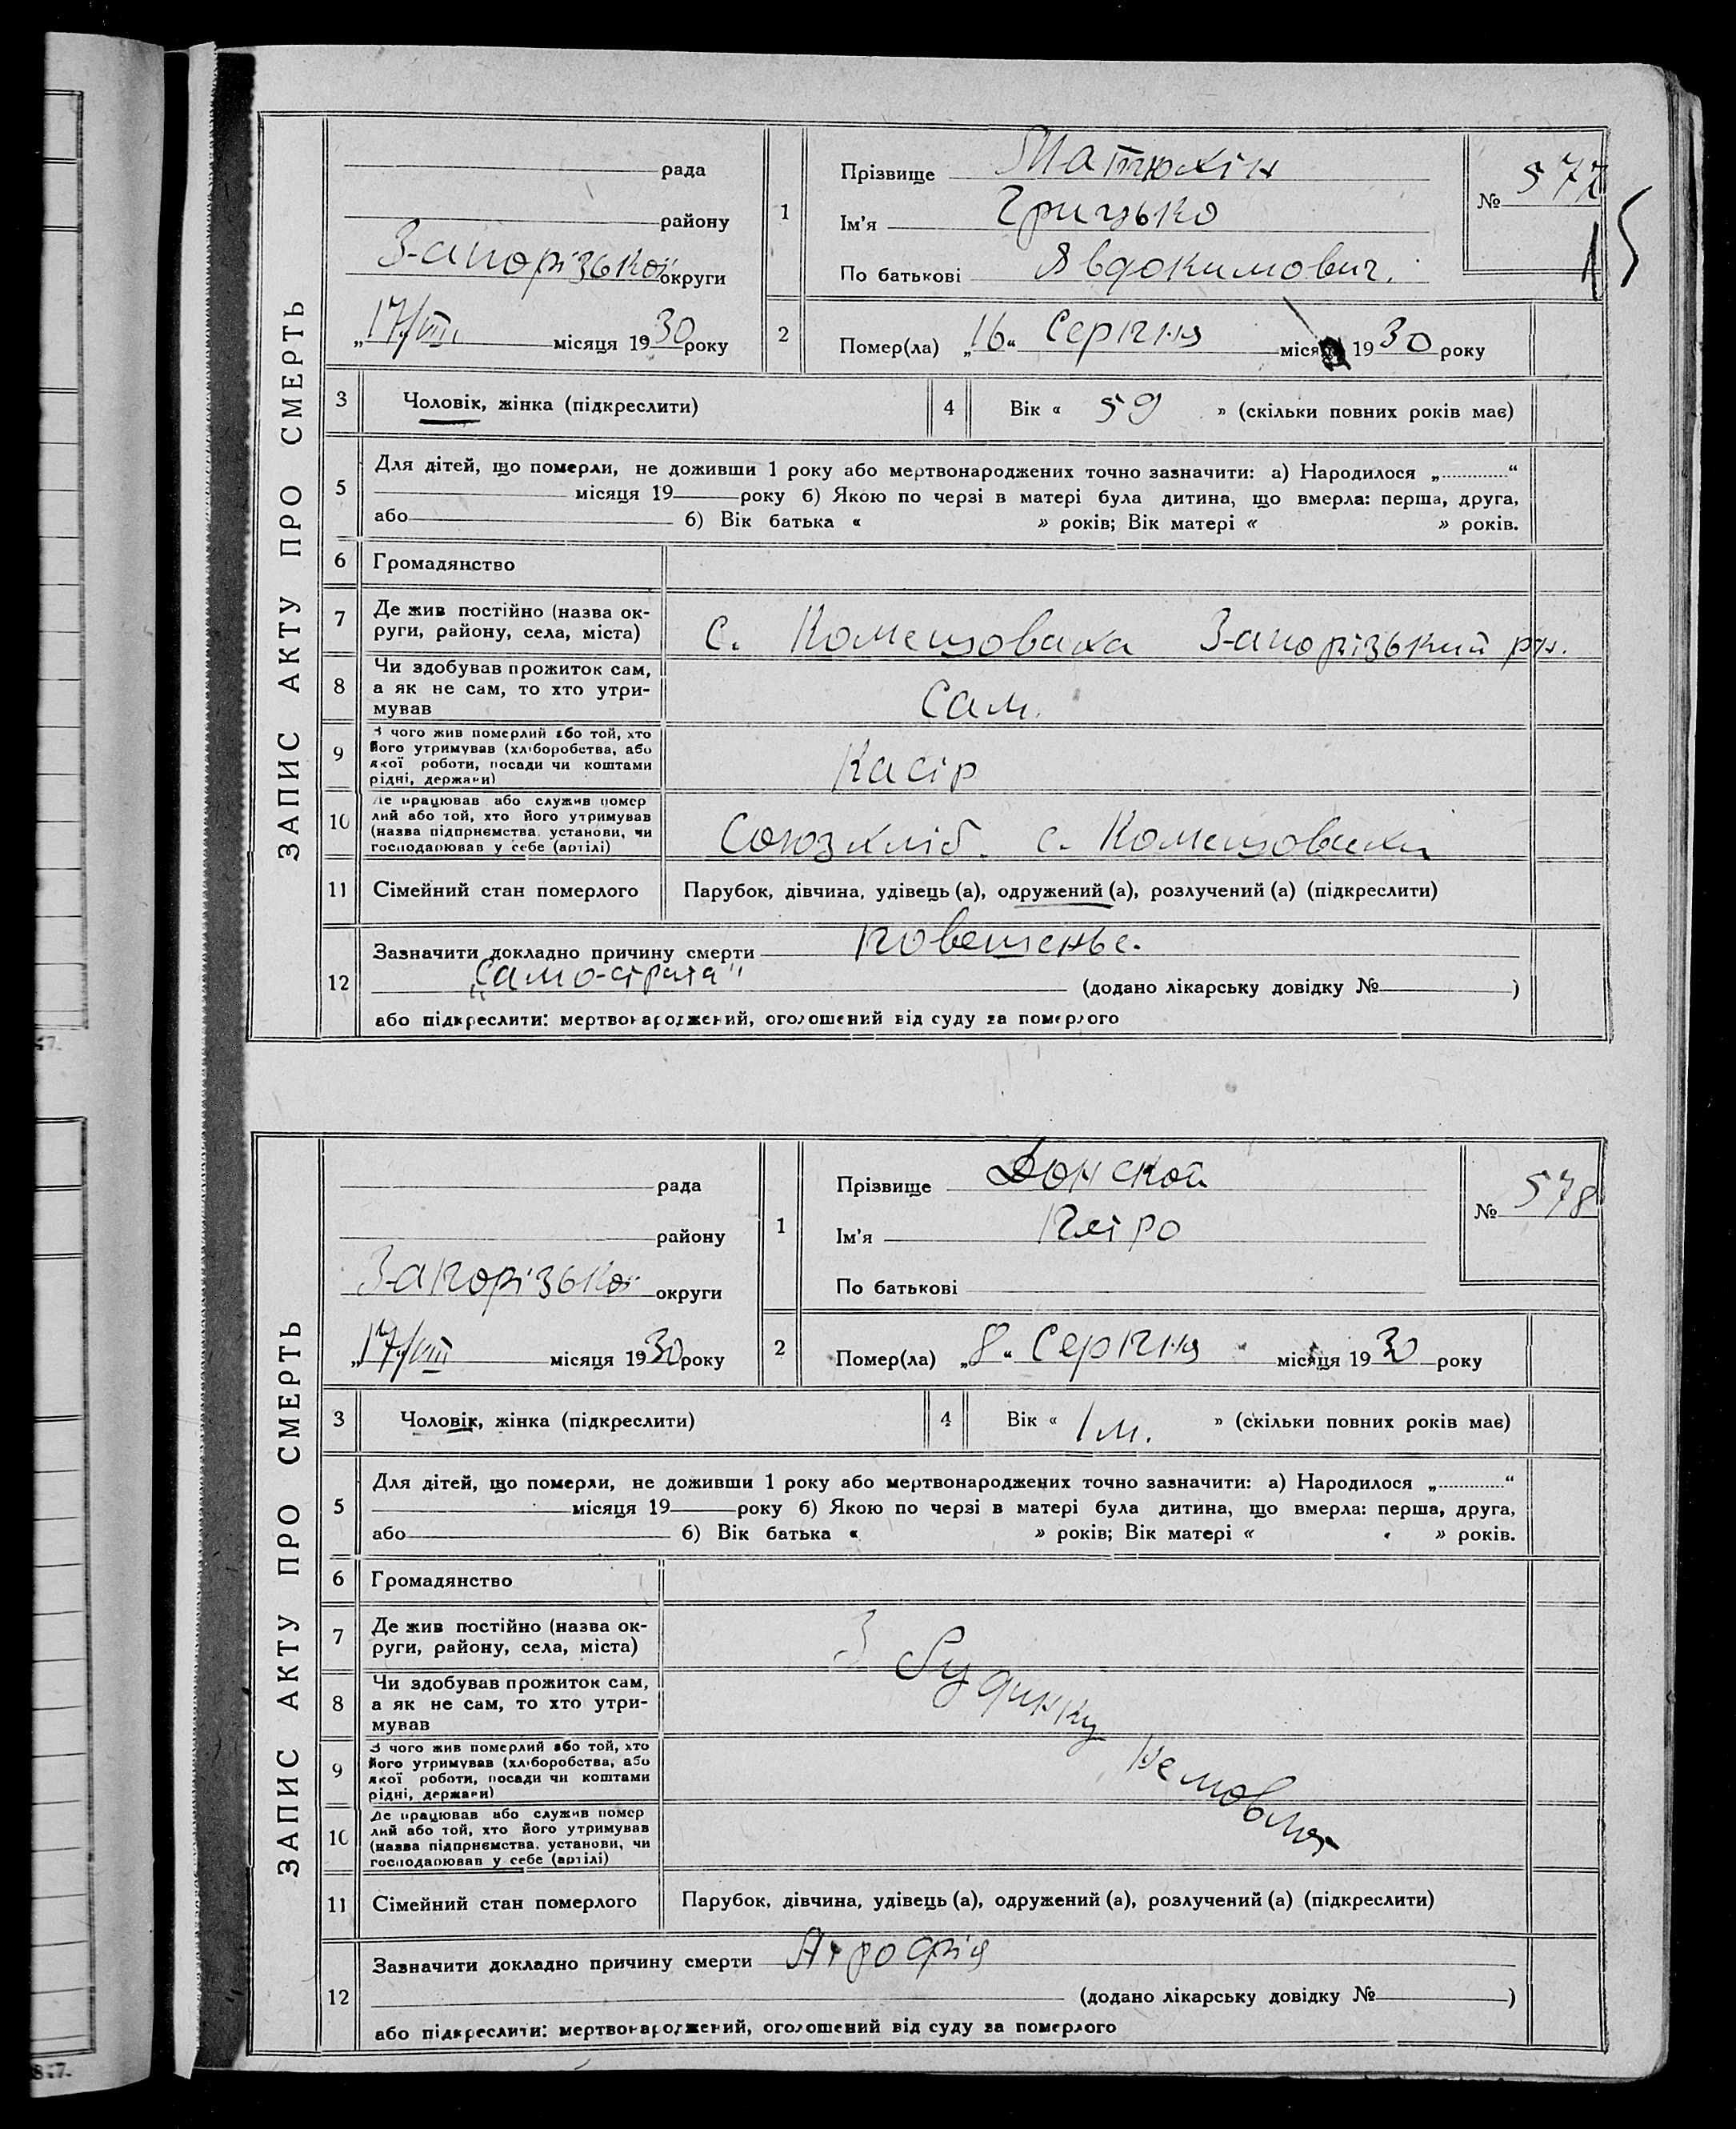 ЗАПИС АКТУ ПРО СМЕРТЬ
рада
району
Запорізької округи
„17/VIII. місяця 1930 року
1
Прізвище Матюхін
Ім'я Грицько
По батькові Явдокимович.
№ 577
15
2
Помер(ла) „16“ Серпня місяця 1930 року
3 Чоловік, жінка (підкреслити)
4 Вік « 59 » (скільки повних років має)
5 Для дітей, що померли, не доживши 1 року або мертвонароджених точно зазначити: а) Народилося „............“
місяця 19 року б) Якою по черзі в матері була дитина, що вмерла: перша, друга,
або б) Вік батька « » років; Вік матері « » років.
6 Громадянство
7 Де жив постійно (назва ок-
руги, району, села, міста)
с. Комешоваха Запорізький рн.
8 Чи здобував прожиток сам,
а як не сам, то хто утри-
мував
Сам.
9 З чого жив померлий або той, хто
його утримував (хліборобства, або
якої роботи, посади чи коштами
рідні, держави)
Касір
10 Де працював або служив помер
лий або той, хто його утримував
(назва підприємства, установи, чи
господарював у себе (артілі)
Союзхліб. с. Комешовахи
11 Сімейний стан померлого Парубок, дівчина, удівець (а), одружений (а), розлучений (а) (підкреслити)
12 Зазначити докладно причину смерти повешенье.
„Само-страта" (додано лікарську довідку № )
або підкреслити: мертвонароджений, оголошений від суду за померлого
ЗАПИС АКТУ ПРО СМЕРТЬ
рада
району
Запорізької округи
„17/VIII місяця 1930 року
1
Прізвище Донской
Ім'я Петро
По батькові
№ 578
2
Помер(ла) „8“ Серпня місяця 1930 року
3 Чоловік, жінка (підкреслити)
4 Вік « 1 м. » (скільки повних років має)
5 Для дітей, що померли, не доживши 1 року або мертвонароджених точно зазначити: а) Народилося „............“
місяця 19 року б) Якою по черзі в матері була дитина, що вмерла: перша, друга,
або б) Вік батька « » років; Вік матері « » років.
6 Громадянство
7 Де жив постійно (назва ок-
руги, району, села, міста)
8 Чи здобував прожиток сам,
а як не сам, то хто утри-
мував
9 З чого жив померлий або той, хто
його утримував (хліборобства, або
якої роботи, посади чи коштами
рідні, держави)
10 Де працював або служив помер
лий або той, хто його утримував
(назва підприємства, установи, чи
господарював у себе (артілі)
З будинку Немовля
11 Сімейний стан померлого Парубок, дівчина, удівець (а), одружений (а), розлучений (а) (підкреслити)
12 Зазначити докладно причину смерти Атрофія
(додано лікарську довідку № )
або підкреслити: мертвонароджений, оголошений від суду за померлого